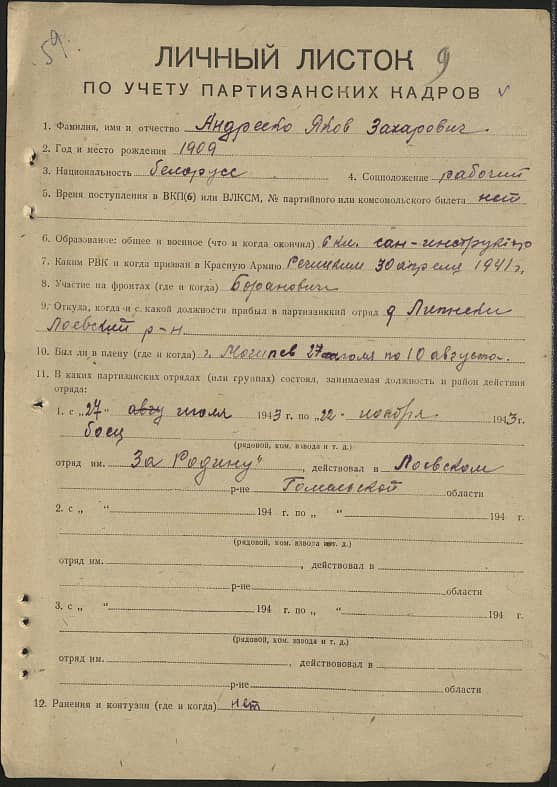 59.
ЛИЧНЫЙ ЛИСТОК 9
ПО УЧЕТУ ПАРТИЗАНСКИХ КАДРОВ
1. Фамилия, имя и отчество Андреско Яков Захарович.
2. Год и место рождения 1909
3. Национальность белорусс 4. Соцположение рабочий
5. Время поступления в ВКП(б) или ВЛКСМ, № партийного или комсомольского билета нет
6. Образование: общее и военное (что и когда окончил) 6 кл. сан-инструктор
7. Каким РВК и когда призван в Красную Армию Речицким 30 апреля 1941 г.
8. Участие на фронтах (где и когда) Боранович
9. Откуда, когда и с какой должности прибыл в партизанский отряд д
Лоевский р-н.
10. Был ли в плену (где и когда) г. Могилев 27 июля по 10 августа.
11. В каких партизанских отрядах (или группах) состоял, занимаемая должность и район действия
отряда:
1. с „27" авгу июля 1943 г. по „22" ноября 1943 г.
боец
(рядовой, ком. взвода и т. д.)
отряд им. За Родину", действовал в Лоевском
р-не Гомельской области
2. с „ " 194 г. по „ " 194 г.
(рядовой, ком. взвода ит. д.)
отряд им. , действовал в
р-не области
3. с „ " 194 г. по „ " 194 г.
(рядовой, ком. взвода и т. д.)
отряд им. , действововал в
р-не области
12. Ранения и контузии (где и когда) нет